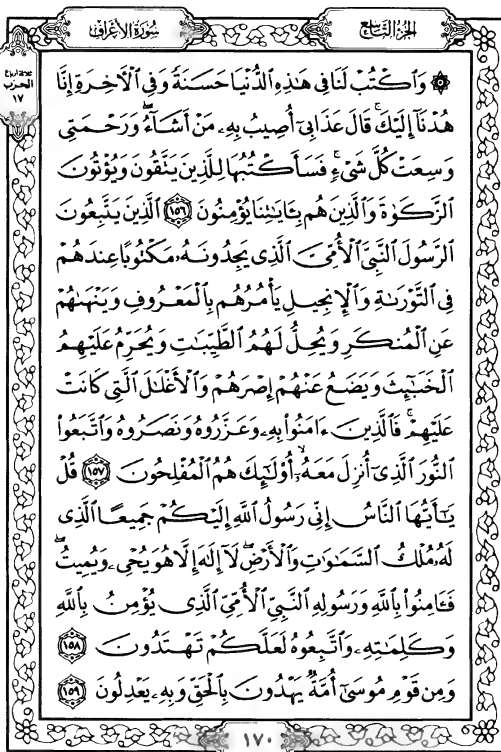 سُورَةُ الأَعْرَافِ
الجُزْءُ التَّاسِعُ
ثلاثة أرباع
الحزب
١٧
۞ وَٱكْتُبْ لَنَا فِى هَٰذِهِ ٱلدُّنْيَا حَسَنَةً وَفِى ٱلْءَاخِرَةِ إِنَّا
هُدْنَآ إِلَيْكَ ۚ قَالَ عَذَابِىٓ أُصِيبُ بِهِۦ مَنْ أَشَآءُ ۖ وَرَحْمَتِى
وَسِعَتْ كُلَّ شَىْءٍ ۚ فَسَأَكْتُبُهَا لِلَّذِينَ يَتَّقُونَ وَيُؤْتُونَ
ٱلزَّكَوٰةَ وَٱلَّذِينَ هُم بِـَٔايَٰتِنَا يُؤْمِنُونَ ١٥٦ ٱلَّذِينَ يَتَّبِعُونَ
ٱلرَّسُولَ ٱلنَّبِىَّ ٱلْأُمِّىَّ ٱلَّذِى يَجِدُونَهُۥ مَكْتُوبًا عِندَهُمْ
فِى ٱلتَّوْرَىٰةِ وَٱلْإِنجِيلِ يَأْمُرُهُم بِٱلْمَعْرُوفِ وَيَنْهَىٰهُمْ
عَنِ ٱلْمُنكَرِ وَيُحِلُّ لَهُمُ ٱلطَّيِّبَٰتِ وَيُحَرِّمُ عَلَيْهِمُ
ٱلْخَبَٰٓئِثَ وَيَضَعُ عَنْهُمْ إِصْرَهُمْ وَٱلْأَغْلَٰلَ ٱلَّتِى كَانَتْ
عَلَيْهِمْ ۚ فَٱلَّذِينَ ءَامَنُوا۟ بِهِۦ وَعَزَّرُوهُ وَنَصَرُوهُ وَٱتَّبَعُوا۟
ٱلنُّورَ ٱلَّذِىٓ أُنزِلَ مَعَهُۥٓ ۙ أُو۟لَٰٓئِكَ هُمُ ٱلْمُفْلِحُونَ ١٥٧ قُلْ
يَٰٓأَيُّهَا ٱلنَّاسُ إِنِّى رَسُولُ ٱللَّهِ إِلَيْكُمْ جَمِيعًا ٱلَّذِى
لَهُۥ مُلْكُ ٱلسَّمَٰوَٰتِ وَٱلْأَرْضِ ۖ لَآ إِلَٰهَ إِلَّا هُوَ يُحْىِۦ وَيُمِيتُ ۖ
فَـَٔامِنُوا۟ بِٱللَّهِ وَرَسُولِهِ ٱلنَّبِىِّ ٱلْأُمِّىِّ ٱلَّذِى يُؤْمِنُ بِٱللَّهِ
وَكَلِمَٰتِهِۦ وَٱتَّبِعُوهُ لَعَلَّكُمْ تَهْتَدُونَ ١٥٨
وَمِن قَوْمِ مُوسَىٰٓ أُمَّةٌ يَهْدُونَ بِٱلْحَقِّ وَبِهِۦ يَعْدِلُونَ ١٥٩
١٧٠